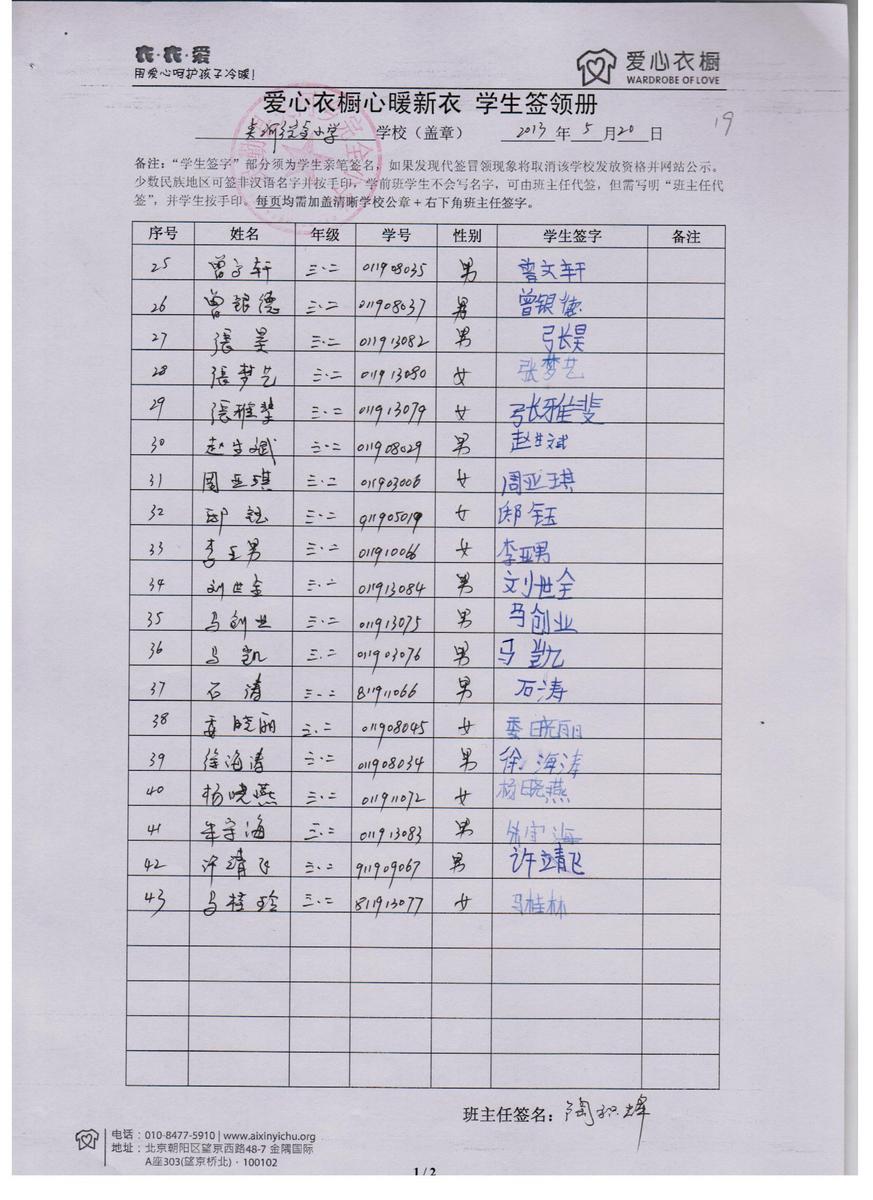 衣·衣·爱
用爱心呵护孩子冷暖！
爱心衣橱
WARDROBE OF LOVE
爱心衣橱心暖新衣 学生签领册
小学 学校（盖章） 2013 年 5 月 20 日
19
备注：“学生签字”部分须为学生亲笔签名，如果发现代签冒领现象将取消该学校发放资格并网站公示。
少数民族地区可签非汉语名字并按手印，学前班学生不会写名字，可由班主任代签，但需写明“班主任代
签”，并学生按手印。每页均需加盖清晰学校公章＋右下角班主任签字。
序号 姓名 年级 学号 性别 学生签字 备注
25 曾文轩 三.二 011908035 男 曾文轩
26 曾银德 三.二 011908037 男 曾银德
27 張昊 三.二 011913082 男 张昊
28 張梦艺 三.二 011913080 女 张梦艺
29 張雅斐 三.二 011913079 女 张雅斐
30 赵生斌 三.二 011908029 男 赵生斌
31 周亚琪 三.二 011903006 女 周亚琪
32 邸钰 三.二 911905019 女 邸钰
33 李亚男 三.二 011910066 女 李亚男
34 刘世全 三.二 011913084 男 刘世全
35 马创业 三.二 011913075 男 马创业
36 马凯 三.二 011903076 男 马凯
37 石涛 三.二 811911066 男 石涛
38 委晓丽 三.二 011908045 女 委晓丽
39 徐海涛 三.二 011908034 男 徐海涛
40 杨晓燕 三.二 011911072 女 杨晓燕
41 朱宇海 三.二 011913083 男 朱宇海
42 许靖飞 三.二 911909067 男 许靖飞
43 马桂玲 三.二 811913077 女 马桂林
班主任签名：
电话：010-8477-5910 | www.aixinyichu.org
地址：北京朝阳区望京西路48-7 金隅国际
A座303(望京桥北)·100102
1 / 2